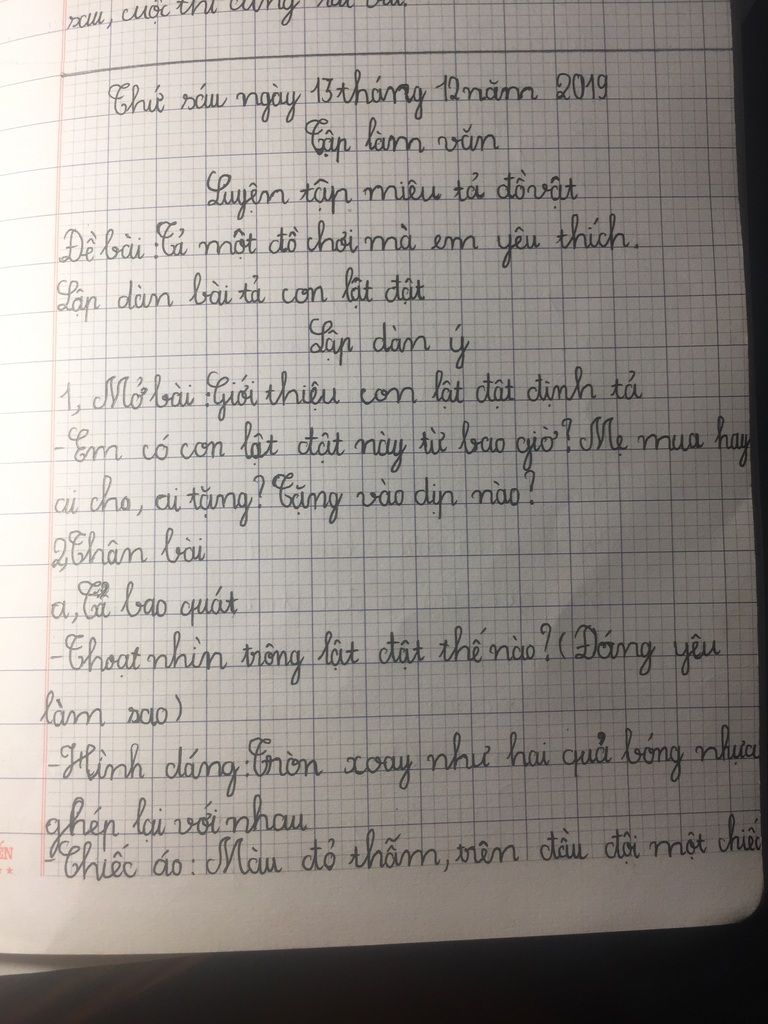 sau, cuộc thi cũng
Thứ sáu ngày 13 tháng 12 năm 2019
Tập làm văn
Luyện tập miêu tả đồ vật
Đề bài: Tả một đồ chơi mà em yêu thích.
Lập dàn bài tả con lật đật
Lập dàn ý
1, Mở bài: Giới thiệu con lật đật định tả
-Em có con lật đật này từ bao giờ? Mẹ mua hay
ai cho, ai tặng? Tặng vào dịp nào?
2, Thân bài
a, Tả bao quát
-Thoạt nhìn trông lật đật thế nào? (Đáng yêu
làm sao)
-Hình dáng: Tròn xoay như hai quả bóng nhựa
ghép lại với nhau
-Chiếc áo: Màu đỏ thẫm, trên đầu đội một chiếc